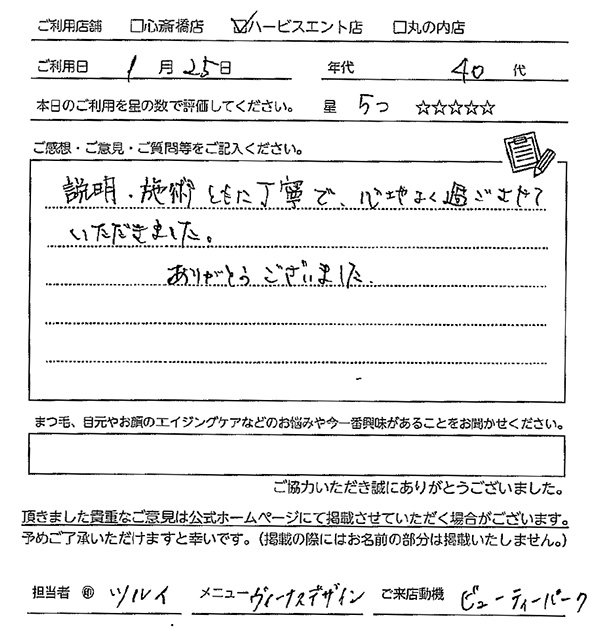 ご利用店舗 □心斎橋店 ☑ハービスエント店 □丸の内店
ご利用日 1月25日 年代 40代
本日のご利用を星の数で評価してください。 星 5つ ☆☆☆☆☆
ご感想・ご意見・ご質問等をご記入ください。
説明・施術ともに丁寧で、心地よく過ごさせて
いただきました。
ありがとうございました.
まつ毛、目元やお顔のエイジングケアなどのお悩みや今一番興味があることをお聞かせください。
ご協力いただき誠にありがとうございました。
頂きました貴重なご意見は公式ホームページにて掲載させていただく場合がございます。
予めご了承いただけますと幸いです。（掲載の際にはお名前の部分は掲載いたしません。）
担当者 ㊞ ツルイ メニュー ヴィーナスデザイン ご来店動機 ビューティーパーク